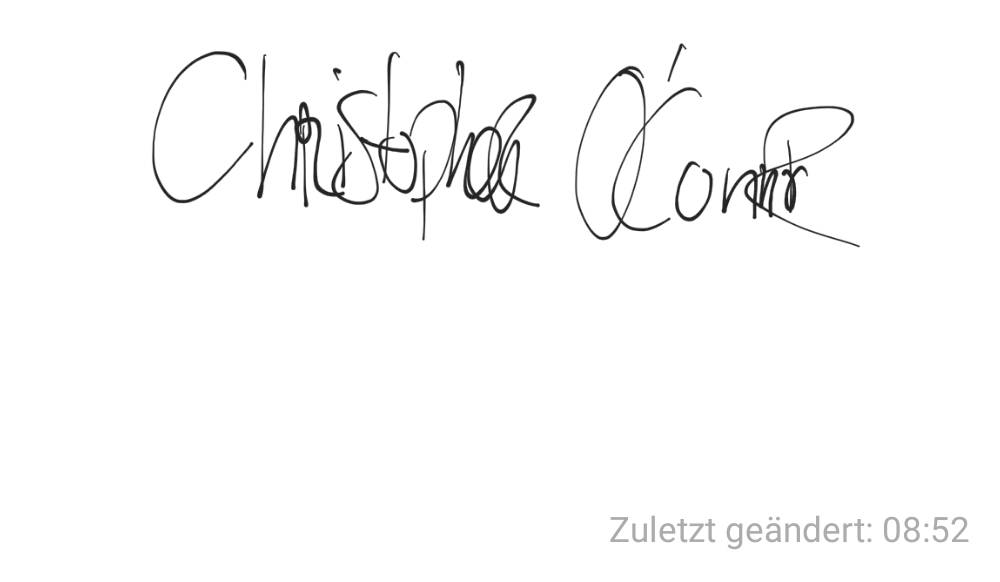 Christopher O'Connor
Zuletzt geändert: 08:52